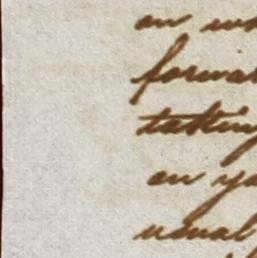 on
forwar
taking
on ya
usual